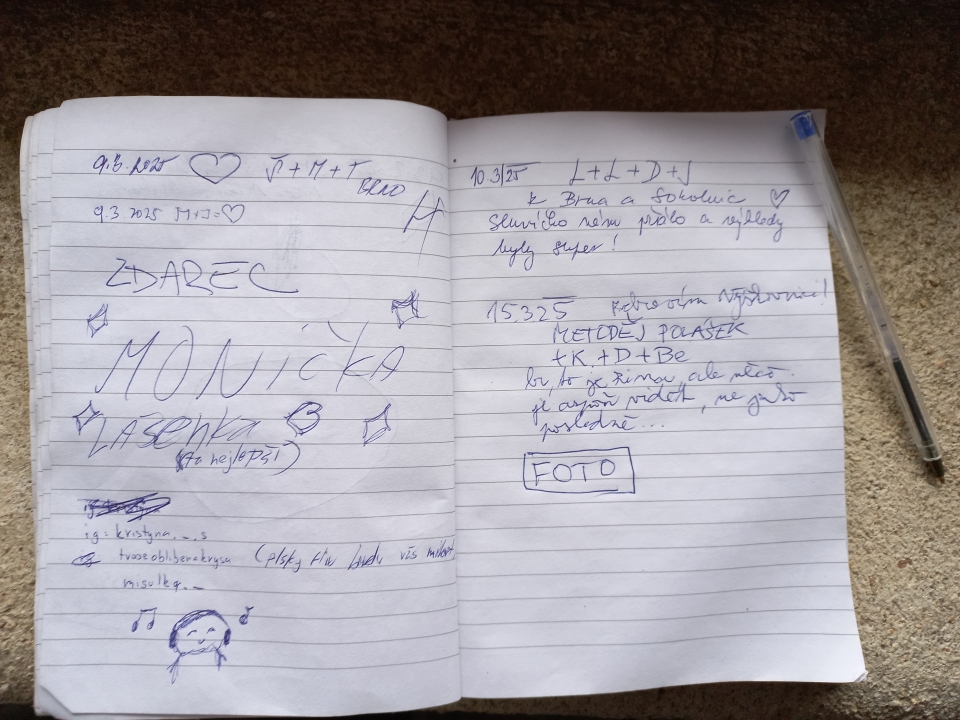 9.3.2025 ♡ J + M + T
BRNO
9.3 2025 M+J=♡
ZDAREC
MONIČKA
ZÁSEHKA
(ta nejlepší)
ig: kristyna._.s
tvojeoblibenakrysa (pisky
misulka._
10.3/25 L+L+D+J
z Brna a Sokolnic ♡
Sluníčko nám přálo a výhledy
byly super!
15.3.25 Zdravím výšlapníci!
METODĚJ POLÁŠEK
+K+D+Be
to je zima, ale něco
je aspoň vidět, ne jako
posledně...
FOTO